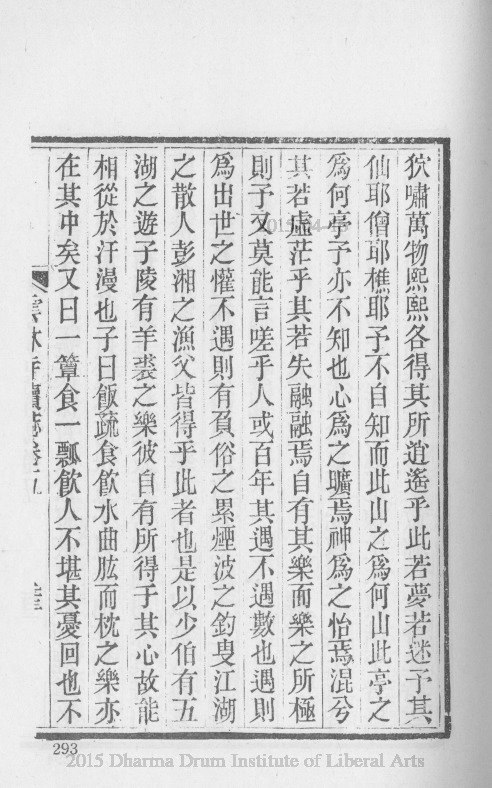 狖嘯萬物熙熙各得其所逍遙乎此若夢若迷予其
仙耶僧耶樵耶予不自知而此山之爲何山此亭之
爲何亭予亦不知也心爲之曠焉神爲之怡焉混兮
其若虛茫乎其若失融融焉自有其樂而樂之所極
則予又莫能言嗟乎人或百年其遇不遇數也遇則
爲出世之懽不遇則有負俗之累煙波之釣叟江湖
之散人彭湘之漁父皆得乎此者也是以少伯有五
湖之遊子陵有羊裘之樂彼自有所得于其心故能
相從於汗漫也子曰飯疏食飲水曲肱而枕之樂亦
在其中矣又曰一簞食一瓢飲人不堪其憂回也不
雲林寺續志卷五
293
2015 Dharma Drum Institute of Liberal Arts